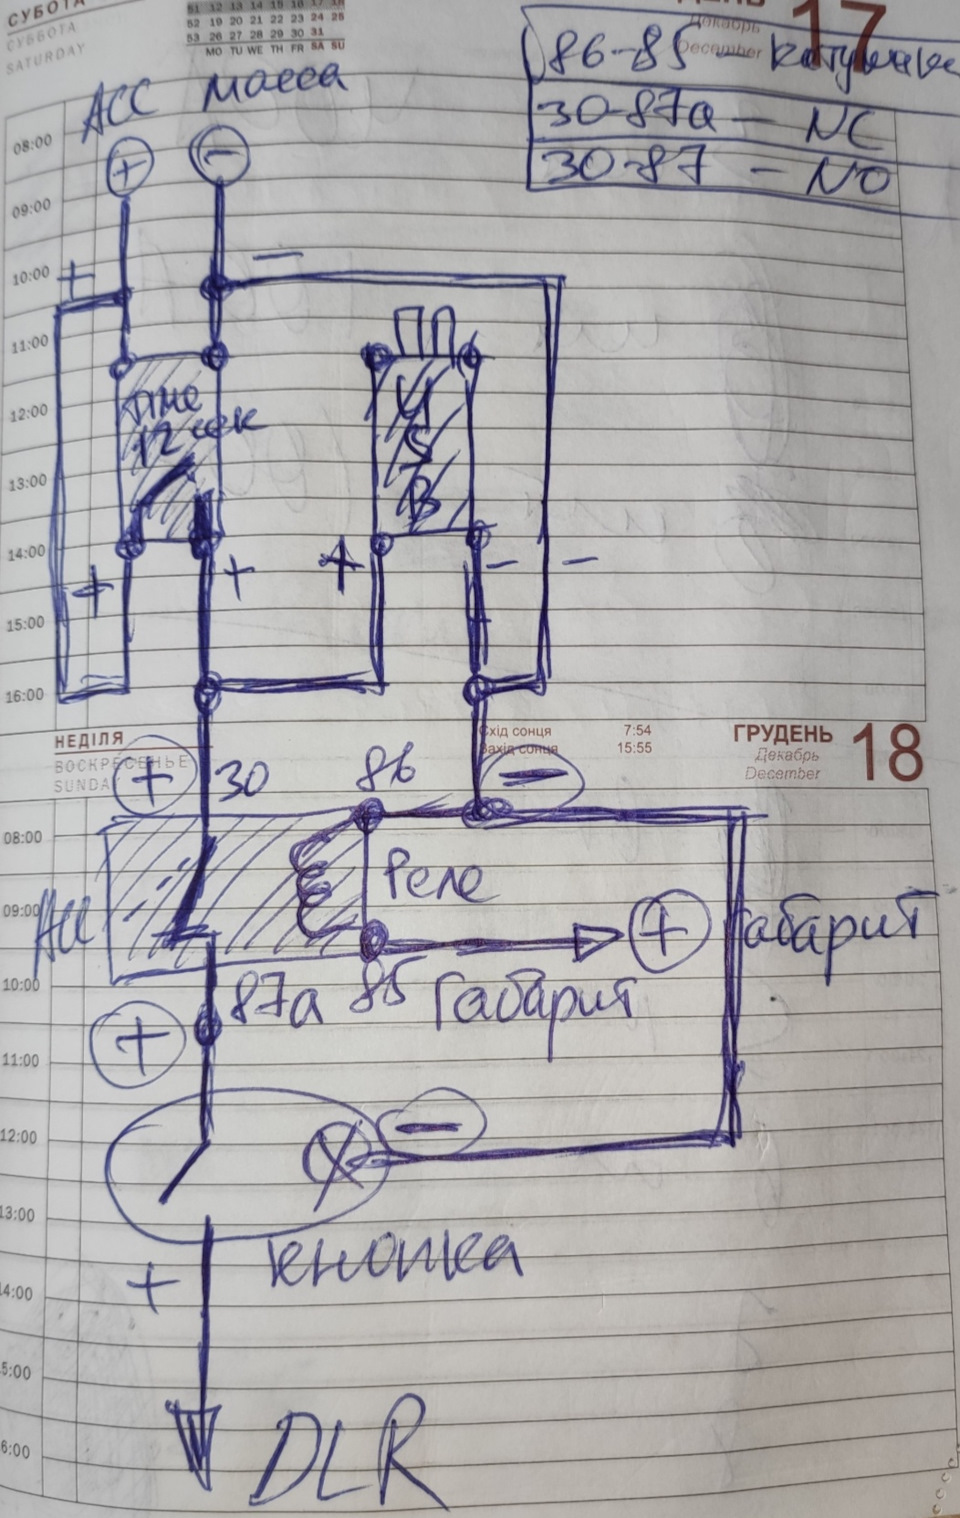 СУБОТА
СУББОТА
SATURDAY
51 12 13 14 15 16 17 18
52 19 20 21 22 23 24 25
53 26 27 28 29 30 31
MO TU WE TH FR SA SU
Декабрь
December
17
86-85 — катушка
30-87a — NC
30-87 — NO
ACC масса
+ −
08:00
09:00
10:00
+ −
11:00
ПП
12:00
12 сек
USB
13:00
14:00
+ + + − −
15:00
16:00
НЕДІЛЯ
ВОСКРЕСЕНЬЕ
SUNDA
Схід сонця 7:54
Захід сонця 15:55
ГРУДЕНЬ
Декабрь
December
18
+ 30 86 −
08:00
Реле
09:00
ACC
+ Габарит
10:00
87a 85 Габарит
+
11:00
12:00
−
13:00
кнопка
+
14:00
5:00
DLR
6:00